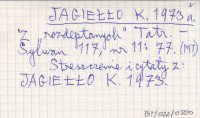 JAGIEŁŁO K. 1973a.
"z rozdeptanych" Tatr. –
Sylwan 117, nr 11: 77. (MT)
Streszczenie i cytaty z:
JAGIEŁŁO K. 1973.